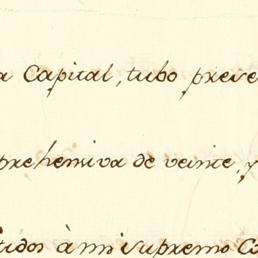 a Capital, tubo prese
prehensiva de veinte, y
tidos à mi supremo Co